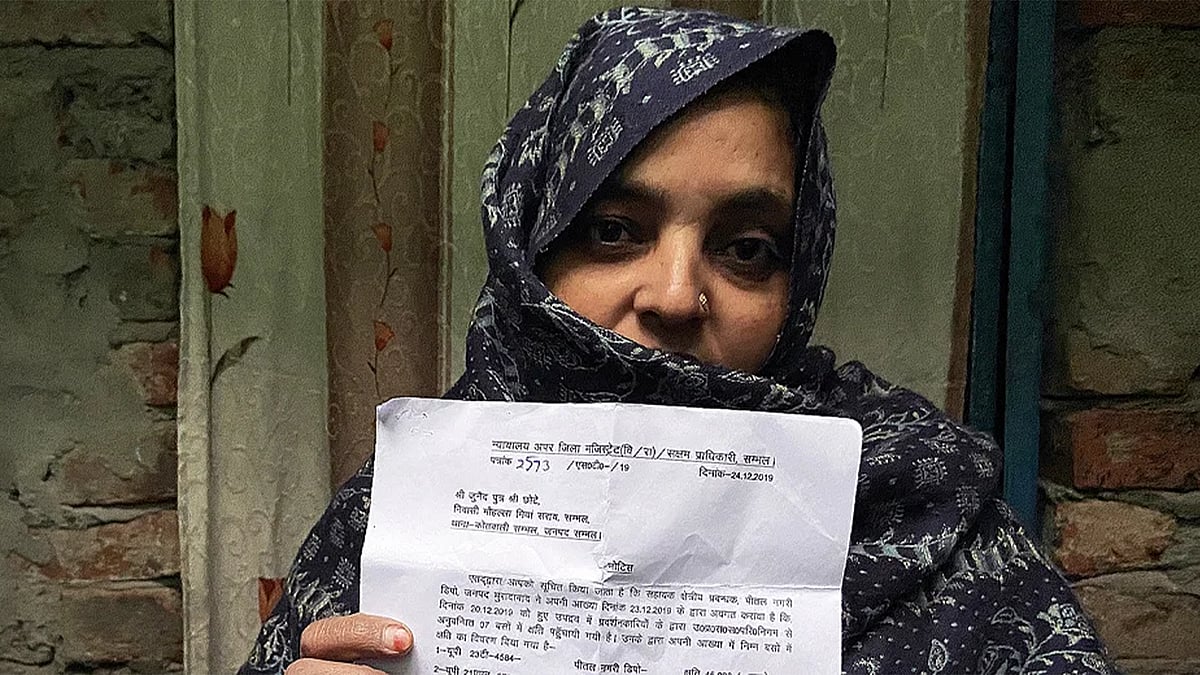 न्यायालय अपर जिला मजिस्ट्रेट(वि/रा)/सक्षम प्राधिकारी, सम्भल।
पत्रांक 2573 /एस०टी०-/19 दिनांक-24.12.2019
श्री जुनैद पुत्र श्री छोटे,
निवासी मौहल्ला मियां सराय, सम्भल,
थाना-कोतवाली सम्भल, जनपद सम्भल।
नोटिस
एतद्द्वारा आपको सूचित किया जाता है कि सहायक क्षेत्रीय प्रबन्धक, पीतल नगरी
डिपो, जनपद मुरादाबाद ने अपनी आख्या दिनांक 23.12.2019 के द्वारा अवगत कराया है कि
दिनांक 20.12.2019 को हुए उपद्रव में प्रदर्शनकारियों के द्वारा उ०प्र०रा०स०परि०निगम से
अनुबन्धित 07 बसों में क्षति पहुँचायी गयी है। उनके द्वारा अपनी आख्या में निम्न बसों में
क्षति का विवरण दिया गया है-
1-यूपी 23टी-4584- पीतल नगरी डिपो- क्षति
2-यूपी